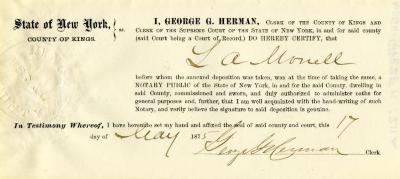 State of New York,
COUNTY OF KINGS.
ss.
I, GEORGE G. HERMAN, CLERK OF THE COUNTY OF KINGS AND
CLERK OF THE SUPREME COURT OF THE STATE OF NEW YORK, in and for said county
(said Court being a Court of Record,) DO HEREBY CERTIFY, that
L A Monell
before whom the annexed deposition was taken, was at the time of taking the same, a
NOTARY PUBLIC of the State of New York, in and for the said County, dwelling in
said County, commissioned and sworn, and duly authorized to administer oaths for
general purposes and, further, that I am well acquainted with the hand-writing of such
Notary, and verily believe the signature to said deposition is genuine.
In Testimony Whereof, I have hereunto set my hand and affixed the seal of said county and court, this 17
day of May 1875
George G Herman Clerk.